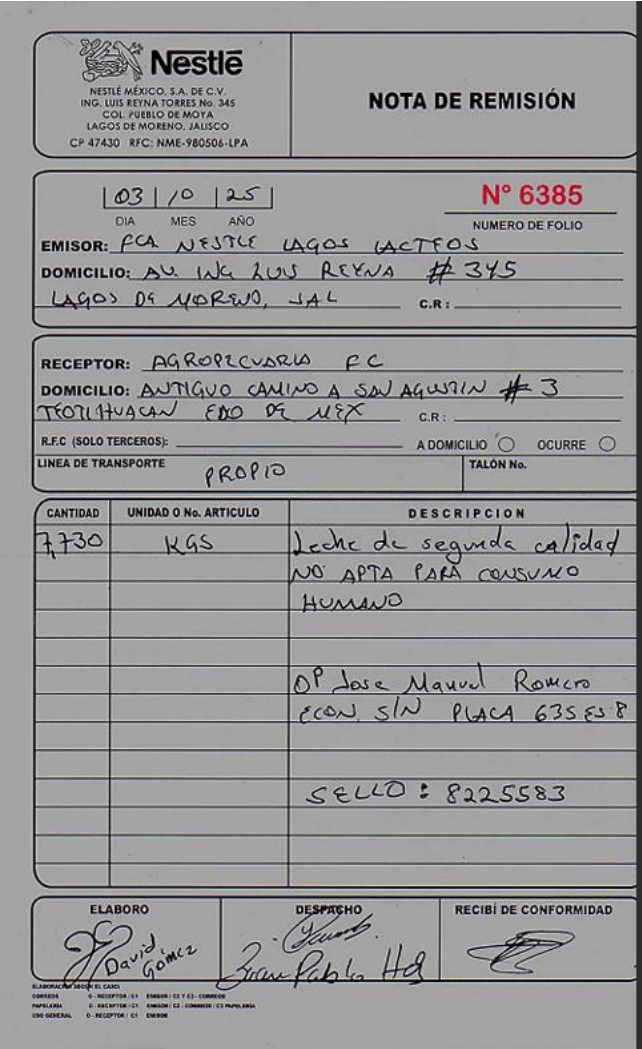 Nestlé
NESTLÉ MÉXICO, S.A. DE C.V.
ING. LUIS REYNA TORRES No. 345
COL. PUEBLO DE MOYA
LAGOS DE MORENO, JALISCO
CP 47430 RFC: NME-980506-LPA
NOTA DE REMISIÓN
03 10 25
DIA MES AÑO
N° 6385
NUMERO DE FOLIO
EMISOR: FCA NESTLE LAGOS LACTEOS
DOMICILIO: AV. ING LUIS REYNA # 345
LAGOS DE MORENO, JAL C.R:
RECEPTOR: AGROPECUARIA FC
DOMICILIO: ANTIGUO CAMINO A SAN AGUSTIN # 3
TEOTIHUACAN EDO DE MEX C.R:
R.F.C (SOLO TERCEROS): A DOMICILIO OCURRE
LINEA DE TRANSPORTE PROPIO TALÓN No.
CANTIDAD UNIDAD O No. ARTICULO DESCRIPCION
7,730 KGS Leche de segunda calidad
NO APTA PARA CONSUMO
HUMANO
OP Jose Manuel Romero
ECON. S/N PLACA 635ES8
SELLO: 8225583
ELABORO DESPACHO RECIBÍ DE CONFORMIDAD
David
Gómez
Pablo
ELABORACIÓN SEGÚN EL CASO:
CORREOS O - RECEPTOR / C1 EMISOR / C2 Y C3 - CORREOS
PAPELERÍA O - RECEPTOR / C1 EMISOR / C2 - CORREOS / C3 PAPELERÍA
USO GENERAL O - RECEPTOR / C1 EMISOR